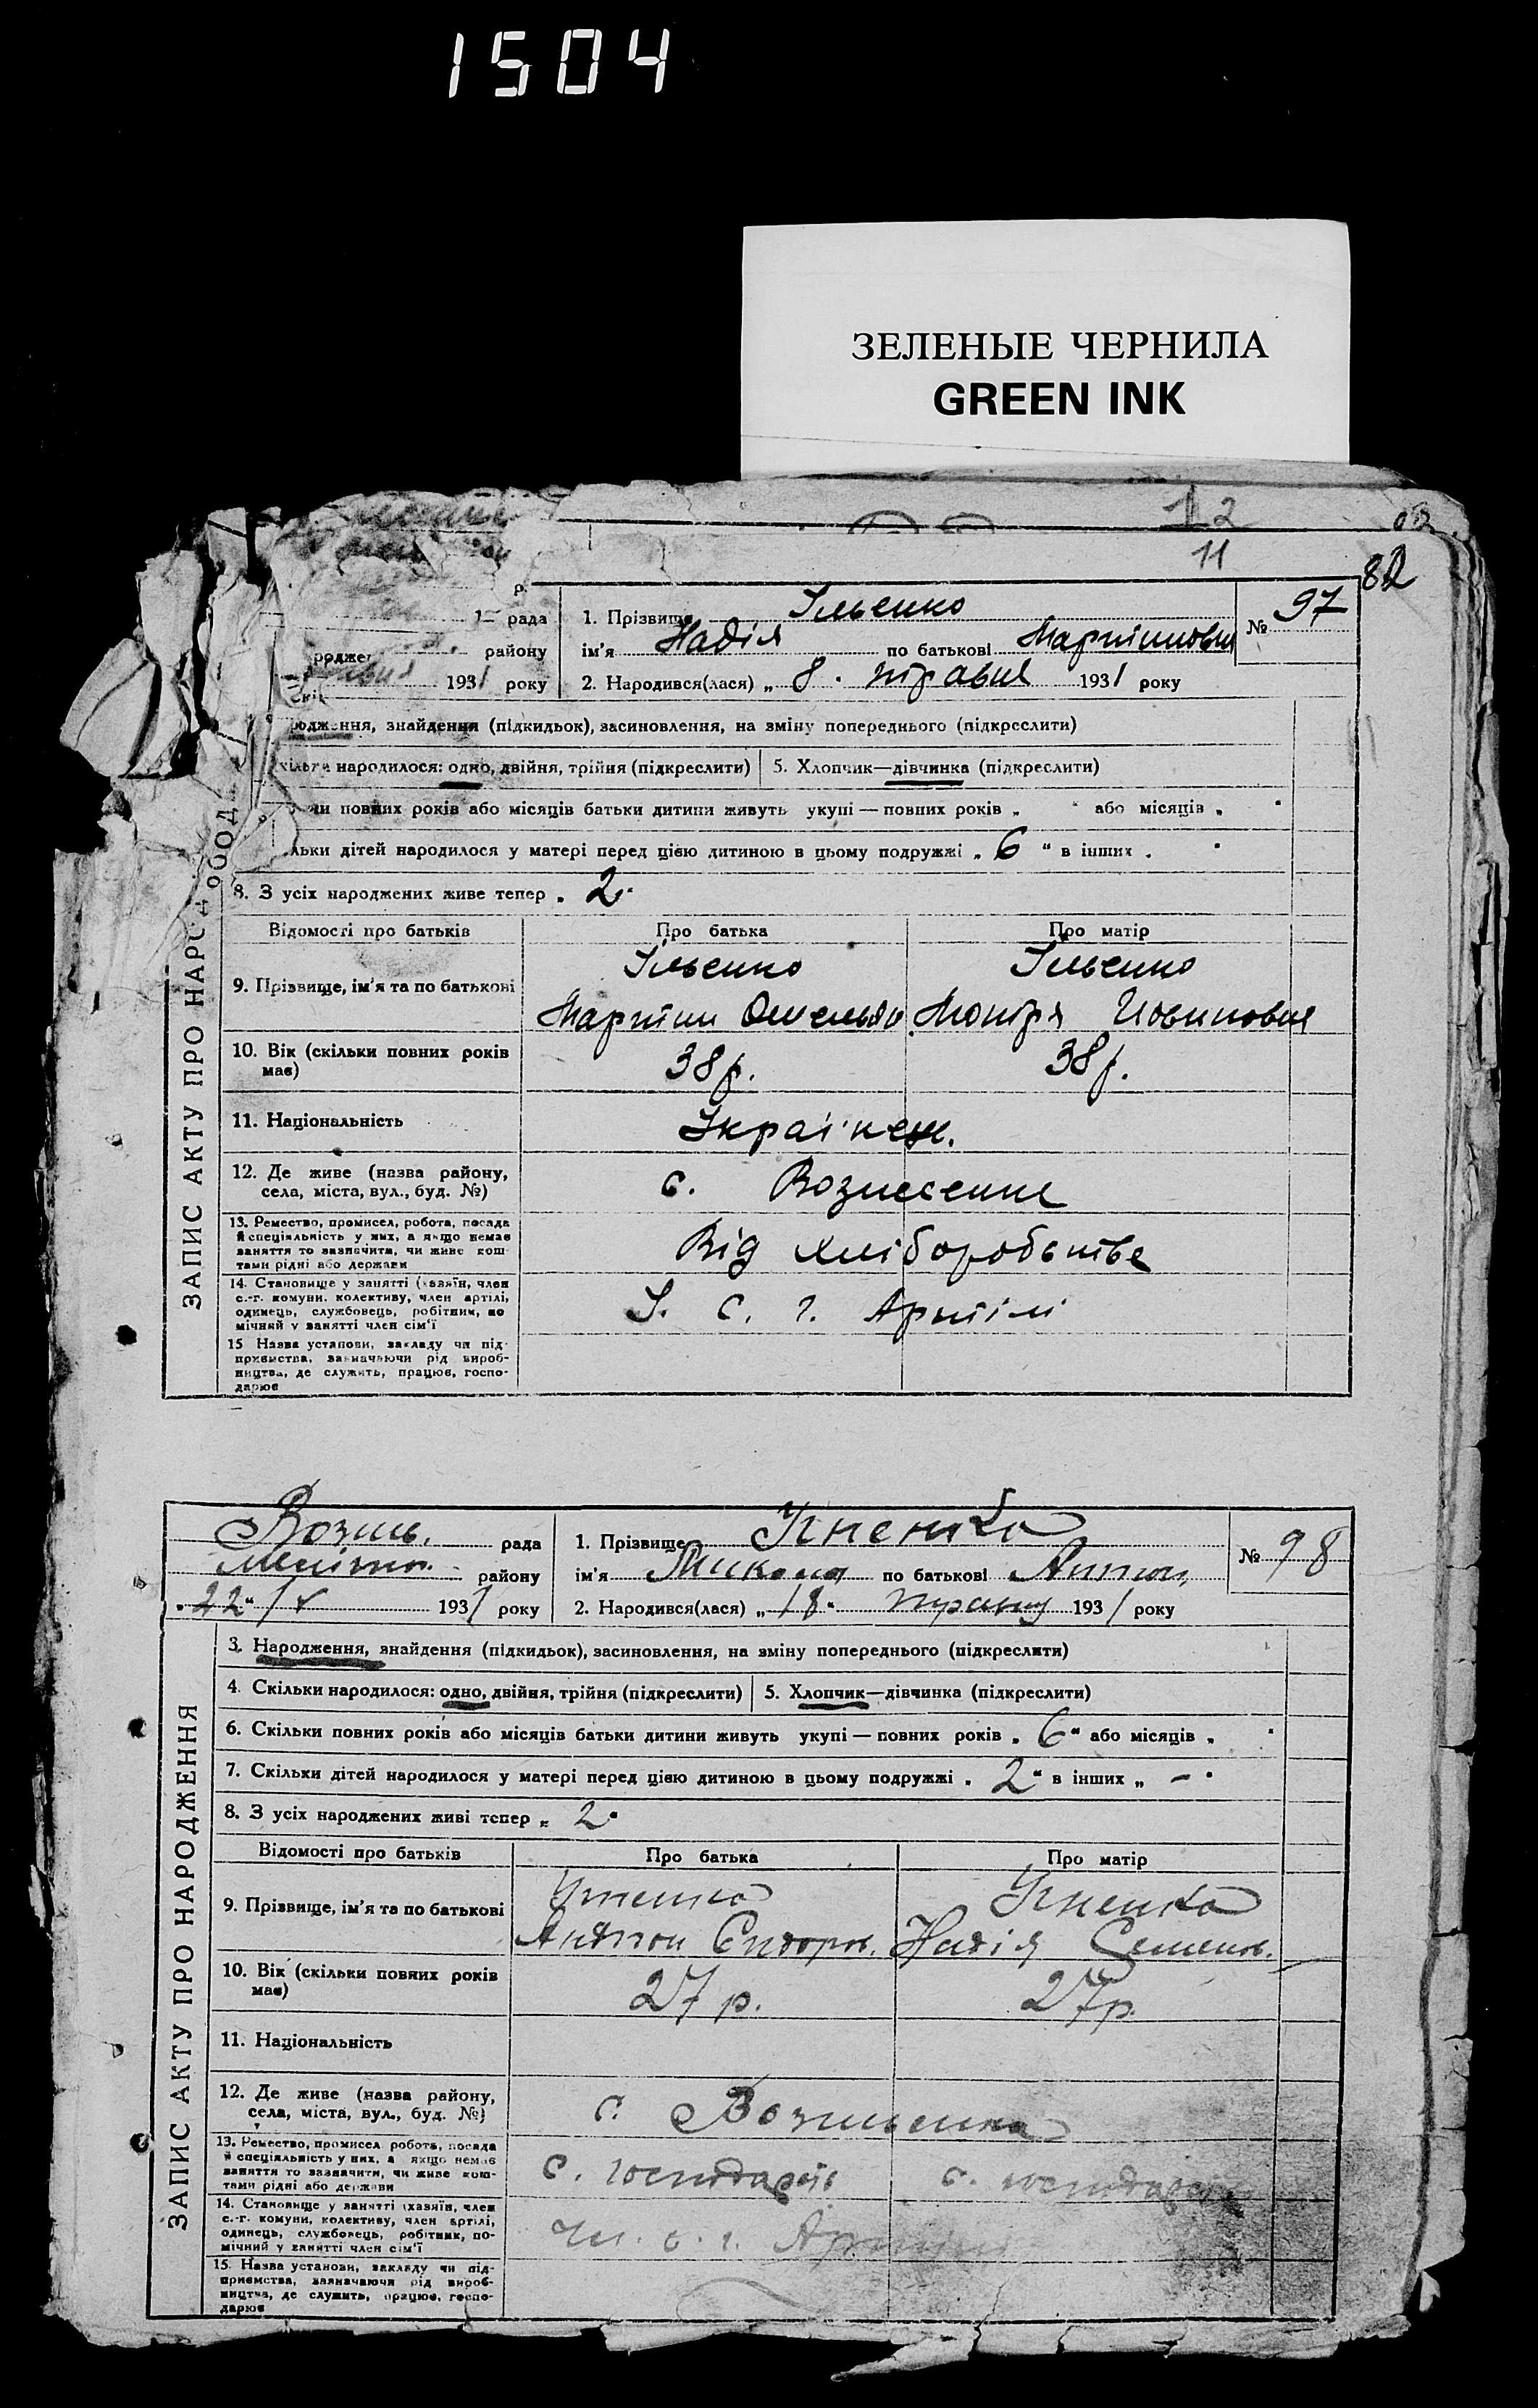 1504
ЗЕЛЕНЫЕ ЧЕРНИЛА
GREEN INK
12
11
82
рада
району
1931 року
1. Прізвище Ільєнко
ім'я Надія по батькові Мартиновна
№ 97
2. Народився(лася) „ 8 . травня 1931 року
знайдення (підкидьок), засиновлення, на зміну попереднього (підкреслити)
народилося: одно, двійня, трійня (підкреслити) 5. Хлопчик—дівчинка (підкреслити)
повних років або місяців батьки дитини живуть укупі — повних років „ або місяців „
дітей народилося у матері перед цією дитиною в цьому подружжі „ 6 “ в інших „
8. З усіх народжених живе тепер „ 2.
Відомості про батьків Про батька Про матір
Ільєнко Ільєнко
9. Прізвище, ім'я та по батькові
Мартин Омельян
10. Вік (скільки повних років має) 38 р. 38 р.
11. Національність
12. Де живе (назва району,
села, міста, вул., буд. №)
с. Вознесенне
13. Ремество, промисел, робота, посада
й спеціяльність у них, а якщо немає
заняття то зазначити, чи живе кош-
тами рідні або держави
Від хліборобьства
14. Становище у занятті (хазяїн, член
с.-г. комуни, колективу, член артілі,
одинець, службовець, робітник, по
мічний у занятті член сім'ї
с. г. Артілі
15 Назва установи, закладу чи під-
приємства, зазначаючи рід вироб-
ництва, де служить, працює, госпо-
дарює
ЗАПИС АКТУ ПРО
рада
району
22 “/V 1931 року
1. Прізвище
ім'я Микола по батькові Антон.
№ 98
2. Народився(лася) „ 18 “ 1931 року
3. Народження, знайдення (підкидьок), засиновлення, на зміну попереднього (підкреслити)
4. Скільки народилося: одно, двійня, трійня (підкреслити) 5. Хлопчик—дівчинка (підкреслити)
6. Скільки повних років або місяців батьки дитини живуть укупі — повних років „ 6 “ або місяців „
7. Скільки дітей народилося у матері перед цією дитиною в цьому подружжі „ 2 “ в інших „ –
8. З усіх народжених живі тепер „ 2
Відомості про батьків Про батька Про матір
9. Прізвище, ім'я та по батькові
Антон Сидоров. Надія Семенов.
10. Вік (скільки повних років має) 27 р. 27 р.
11. Національність
12. Де живе (назва району,
села, міста, вул., буд. №)
с.
13. Ремество, промисел робота, посада
й спеціяльність у них, а якщо немає
заняття то зазначити, чи живе кош-
тами рідні або держави
14. Становище у занятті (хазяїн, член
с.-г. комуни, колективу, член артілі,
одинець, службовець, робітник, по-
мічний у занятті член сім'ї
чл. с. г.
15. Назва установи, закладу чи під-
приємства, зазначаючи рід вироб-
ництва, де служить, працює, госпо-
дарює
ЗАПИС АКТУ ПРО НАРОДЖЕННЯ